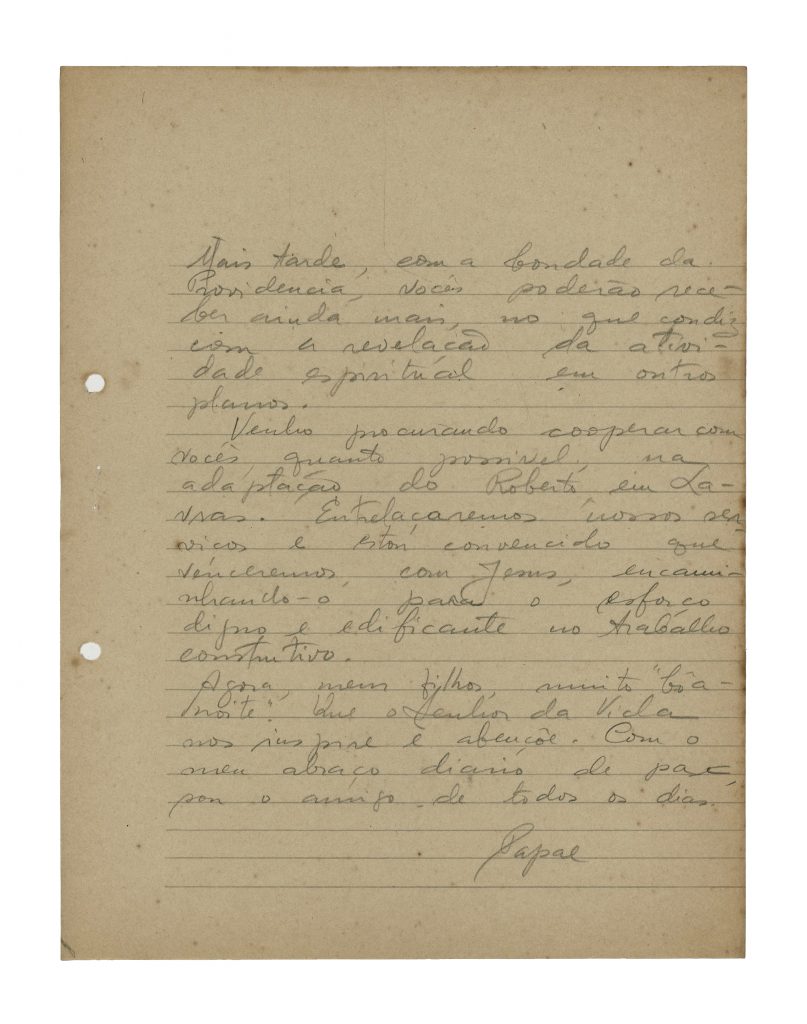 Mais tarde, com a bondade da
Providencia, vocês poderão rece-
ber ainda mais, no que condiz
com a revelação da ativi-
dade espiritual em outros
planos.
Venho procurando cooperar com
vocês, quanto possivel, na
adaptação do Roberto em La-
vras. Entrelaçaremos nossos ser-
viços e estou convencido que
venceremos, com Jesus, encami-
nhando-o para o esforço
digno e edificante no trabalho
construtivo.
Agora, meus filhos, muito "bôa-
noite". Que o Senhor da Vida
nos inspire e abençõe. Com o
meu abraço diario de paz,
sou o amigo de todos os dias.
Papae